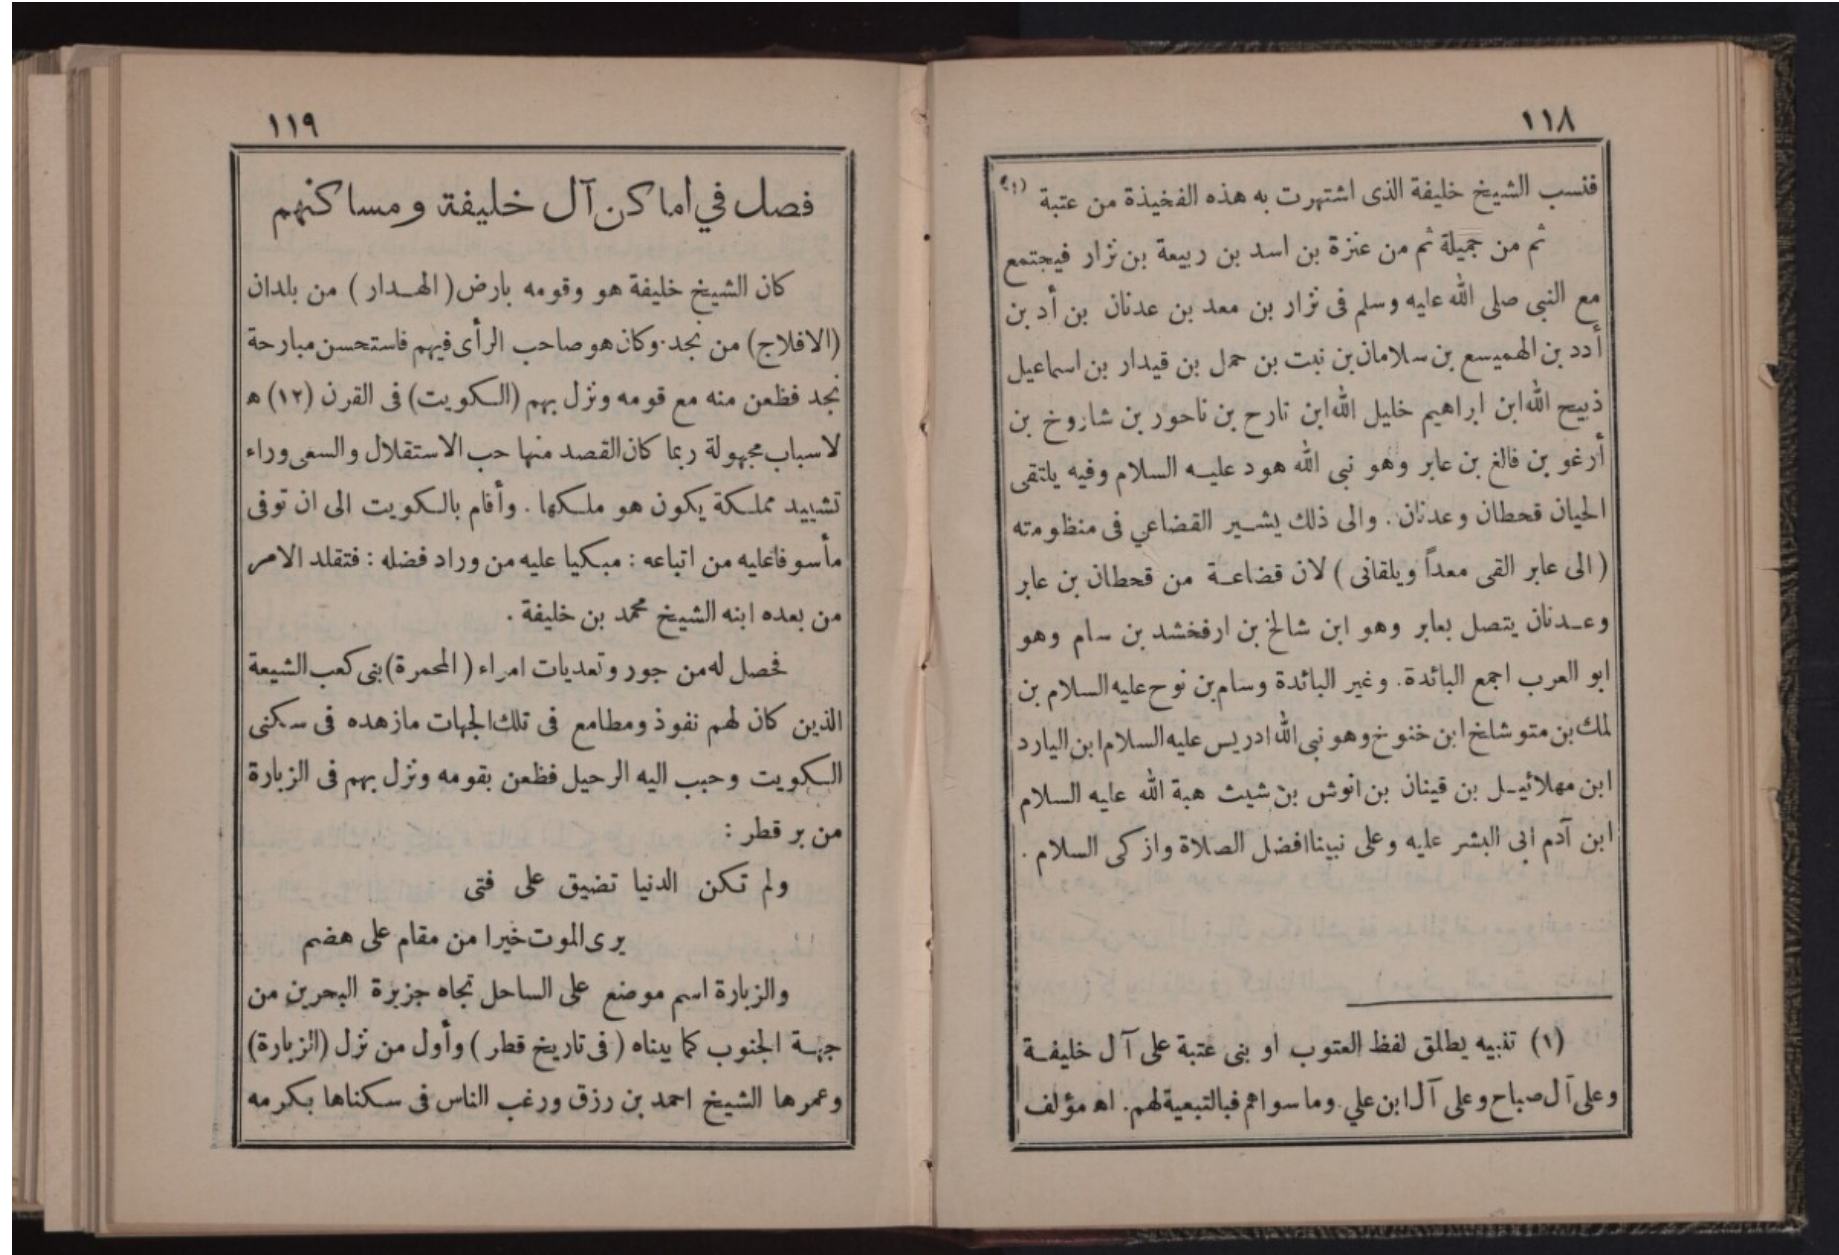 ١١٨
فنسب الشيخ خليفة الذى اشتهرت به هذه الفخيذة من عتبة (١)
ثم من جميلة ثم من عنزة بن اسد بن ربيعة بن نزار فيجتمع
مع النبى صلى الله عليه وسلم فى نزار بن معد بن عدنان بن أد بن
أدد بن الهميسع بن سلامان بن نبت بن حمل بن قيدار بن اسماعيل
ذبيح الله ابن ابراهيم خليل الله ابن تارح بن ناحور بن شاروخ بن
أرغو بن فالغ بن عابر وهو نبى الله هود عليه السلام وفيه يلتقى
الحيان قحطان وعدنان. والى ذلك يشير القضاعي فى منظومته
( الى عابر القى معداً ويلقانى ) لان قضاعة من قحطان بن عابر
وعدنان يتصل بعابر وهو ابن شالخ بن ارفخشد بن سام وهو
ابو العرب اجمع البائدة. وغير البائدة وسام بن نوح عليه السلام بن
لمك بن متوشلخ ابن خنوخ وهو نبى الله ادريس عليه السلام ابن اليارد
ابن مهلائيل بن قينان بن انوش بن شيث هبة الله عليه السلام
ابن آدم ابى البشر عليه وعلى نبينا افضل الصلاة وازكى السلام .
(١) تنبيه يطلق لفظ العتوب او بنى عتبة على آل خليفة
وعلى آل صباح وعلى آل ابن علي. وما سواهم فبالتبعية لهم. اه مؤلف
١١٩
فصل في اماكن آل خليفة ومساكنهم
كان الشيخ خليفة هو وقومه بارض ( الهدار ) من بلدان
(الافلاج) من نجد. وكان هو صاحب الرأى فيهم فاستحسن مبارحة
نجد فظعن منه مع قومه ونزل بهم (الكويت) فى القرن (١٢) ه
لاسباب مجهولة ربما كان القصد منها حب الاستقلال والسعى وراء
تشييد مملكة يكون هو ملكها . وأقام بالكويت الى ان توفى
مأسوفا عليه من اتباعه : مبكيا عليه من وراد فضله : فتقلد الامر
من بعده ابنه الشيخ محمد بن خليفة .
فحصل له من جور وتعديات امراء ( المحمرة ) بنى كعب الشيعة
الذين كان لهم نفوذ ومطامع فى تلك الجهات مازهده فى سكنى
الكويت وحبب اليه الرحيل فظعن بقومه ونزل بهم فى الزبارة
من بر قطر :
ولم تكن الدنيا تضيق على فتى
يرى الموت خيرا من مقام على هضم
والزبارة اسم موضع على الساحل تجاه جزيرة البحرين من
جهة الجنوب كما بيناه ( فى تاريخ قطر ) وأول من نزل (الزبارة)
وعمرها الشيخ احمد بن رزق ورغب الناس فى سكناها بكرمه